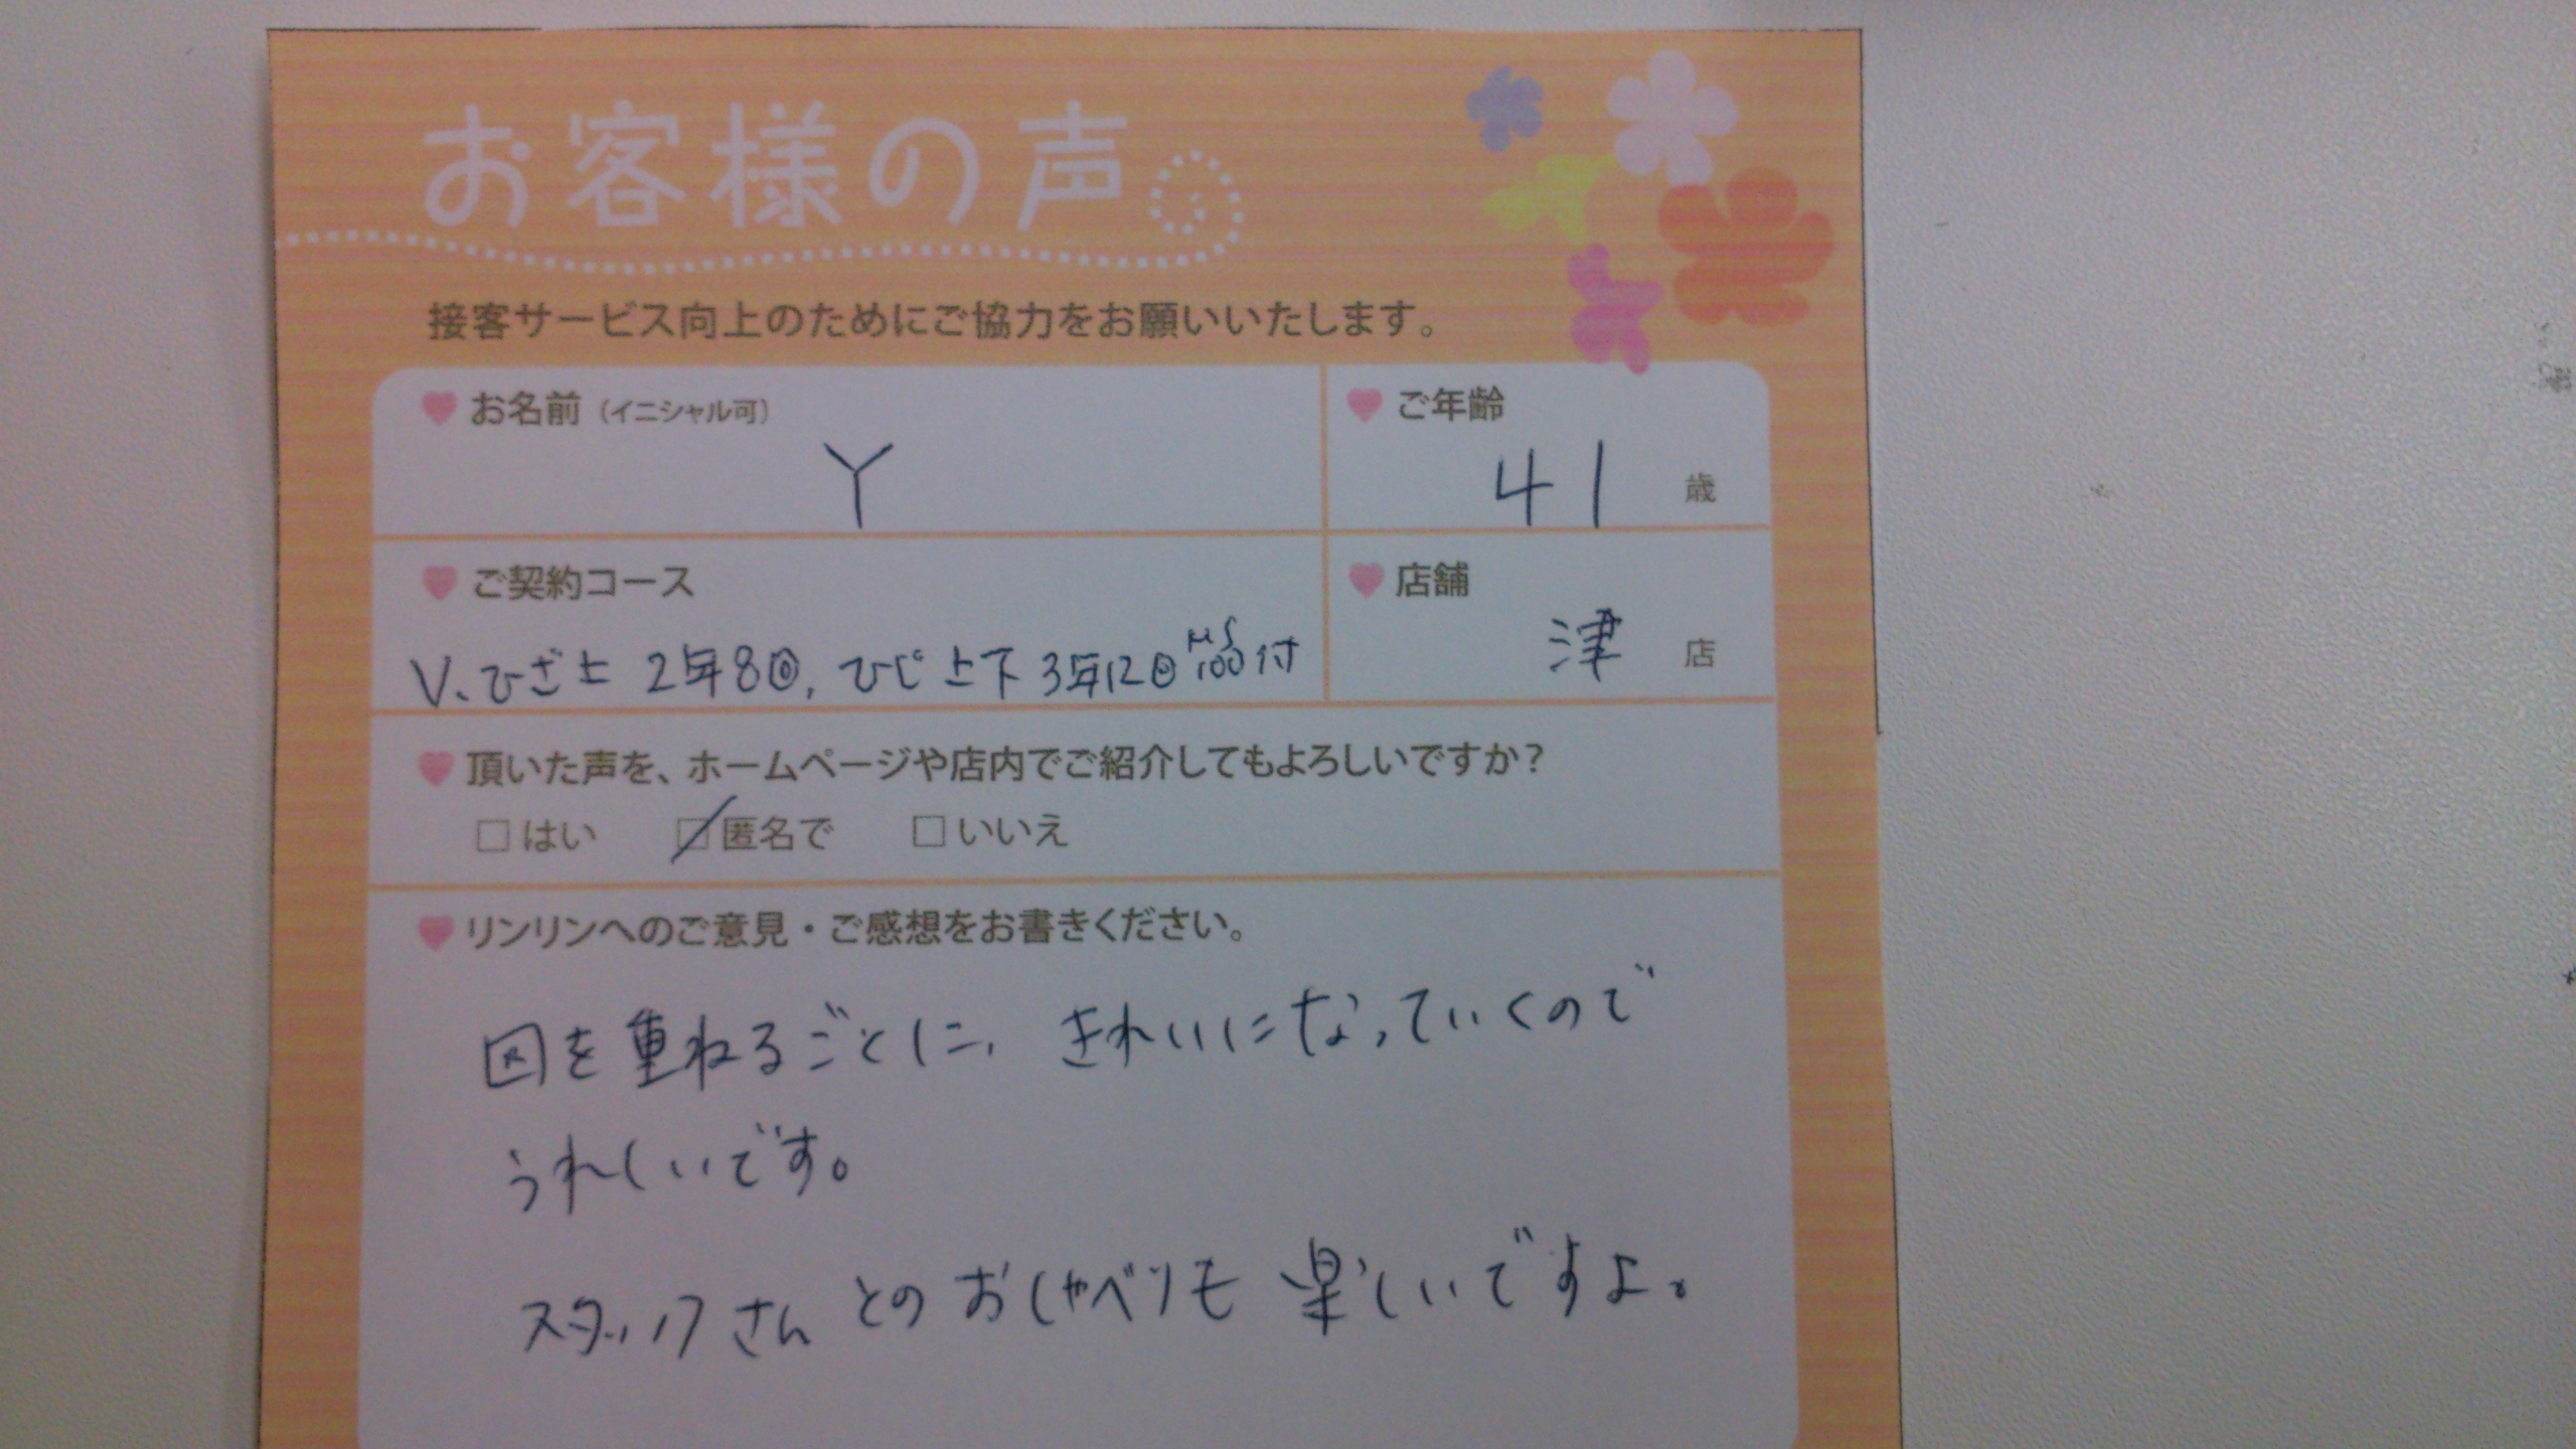 お客様の声
接客サービス向上のためにご協力をお願いいたします。
お名前（イニシャル可）
Y
ご年齢
41 歳
ご契約コース
V、ひざ上 2年8回, ひじ上下 3年12回 100付
店舗
津 店
頂いた声を、ホームページや店内でご紹介してもよろしいですか？
はい 匿名で いいえ
リンリンへのご意見・ご感想をお書きください。
回を重ねるごとに、きれいになっていくので
うれしいです。
スタッフさんとのおしゃべりも楽しいですよ。